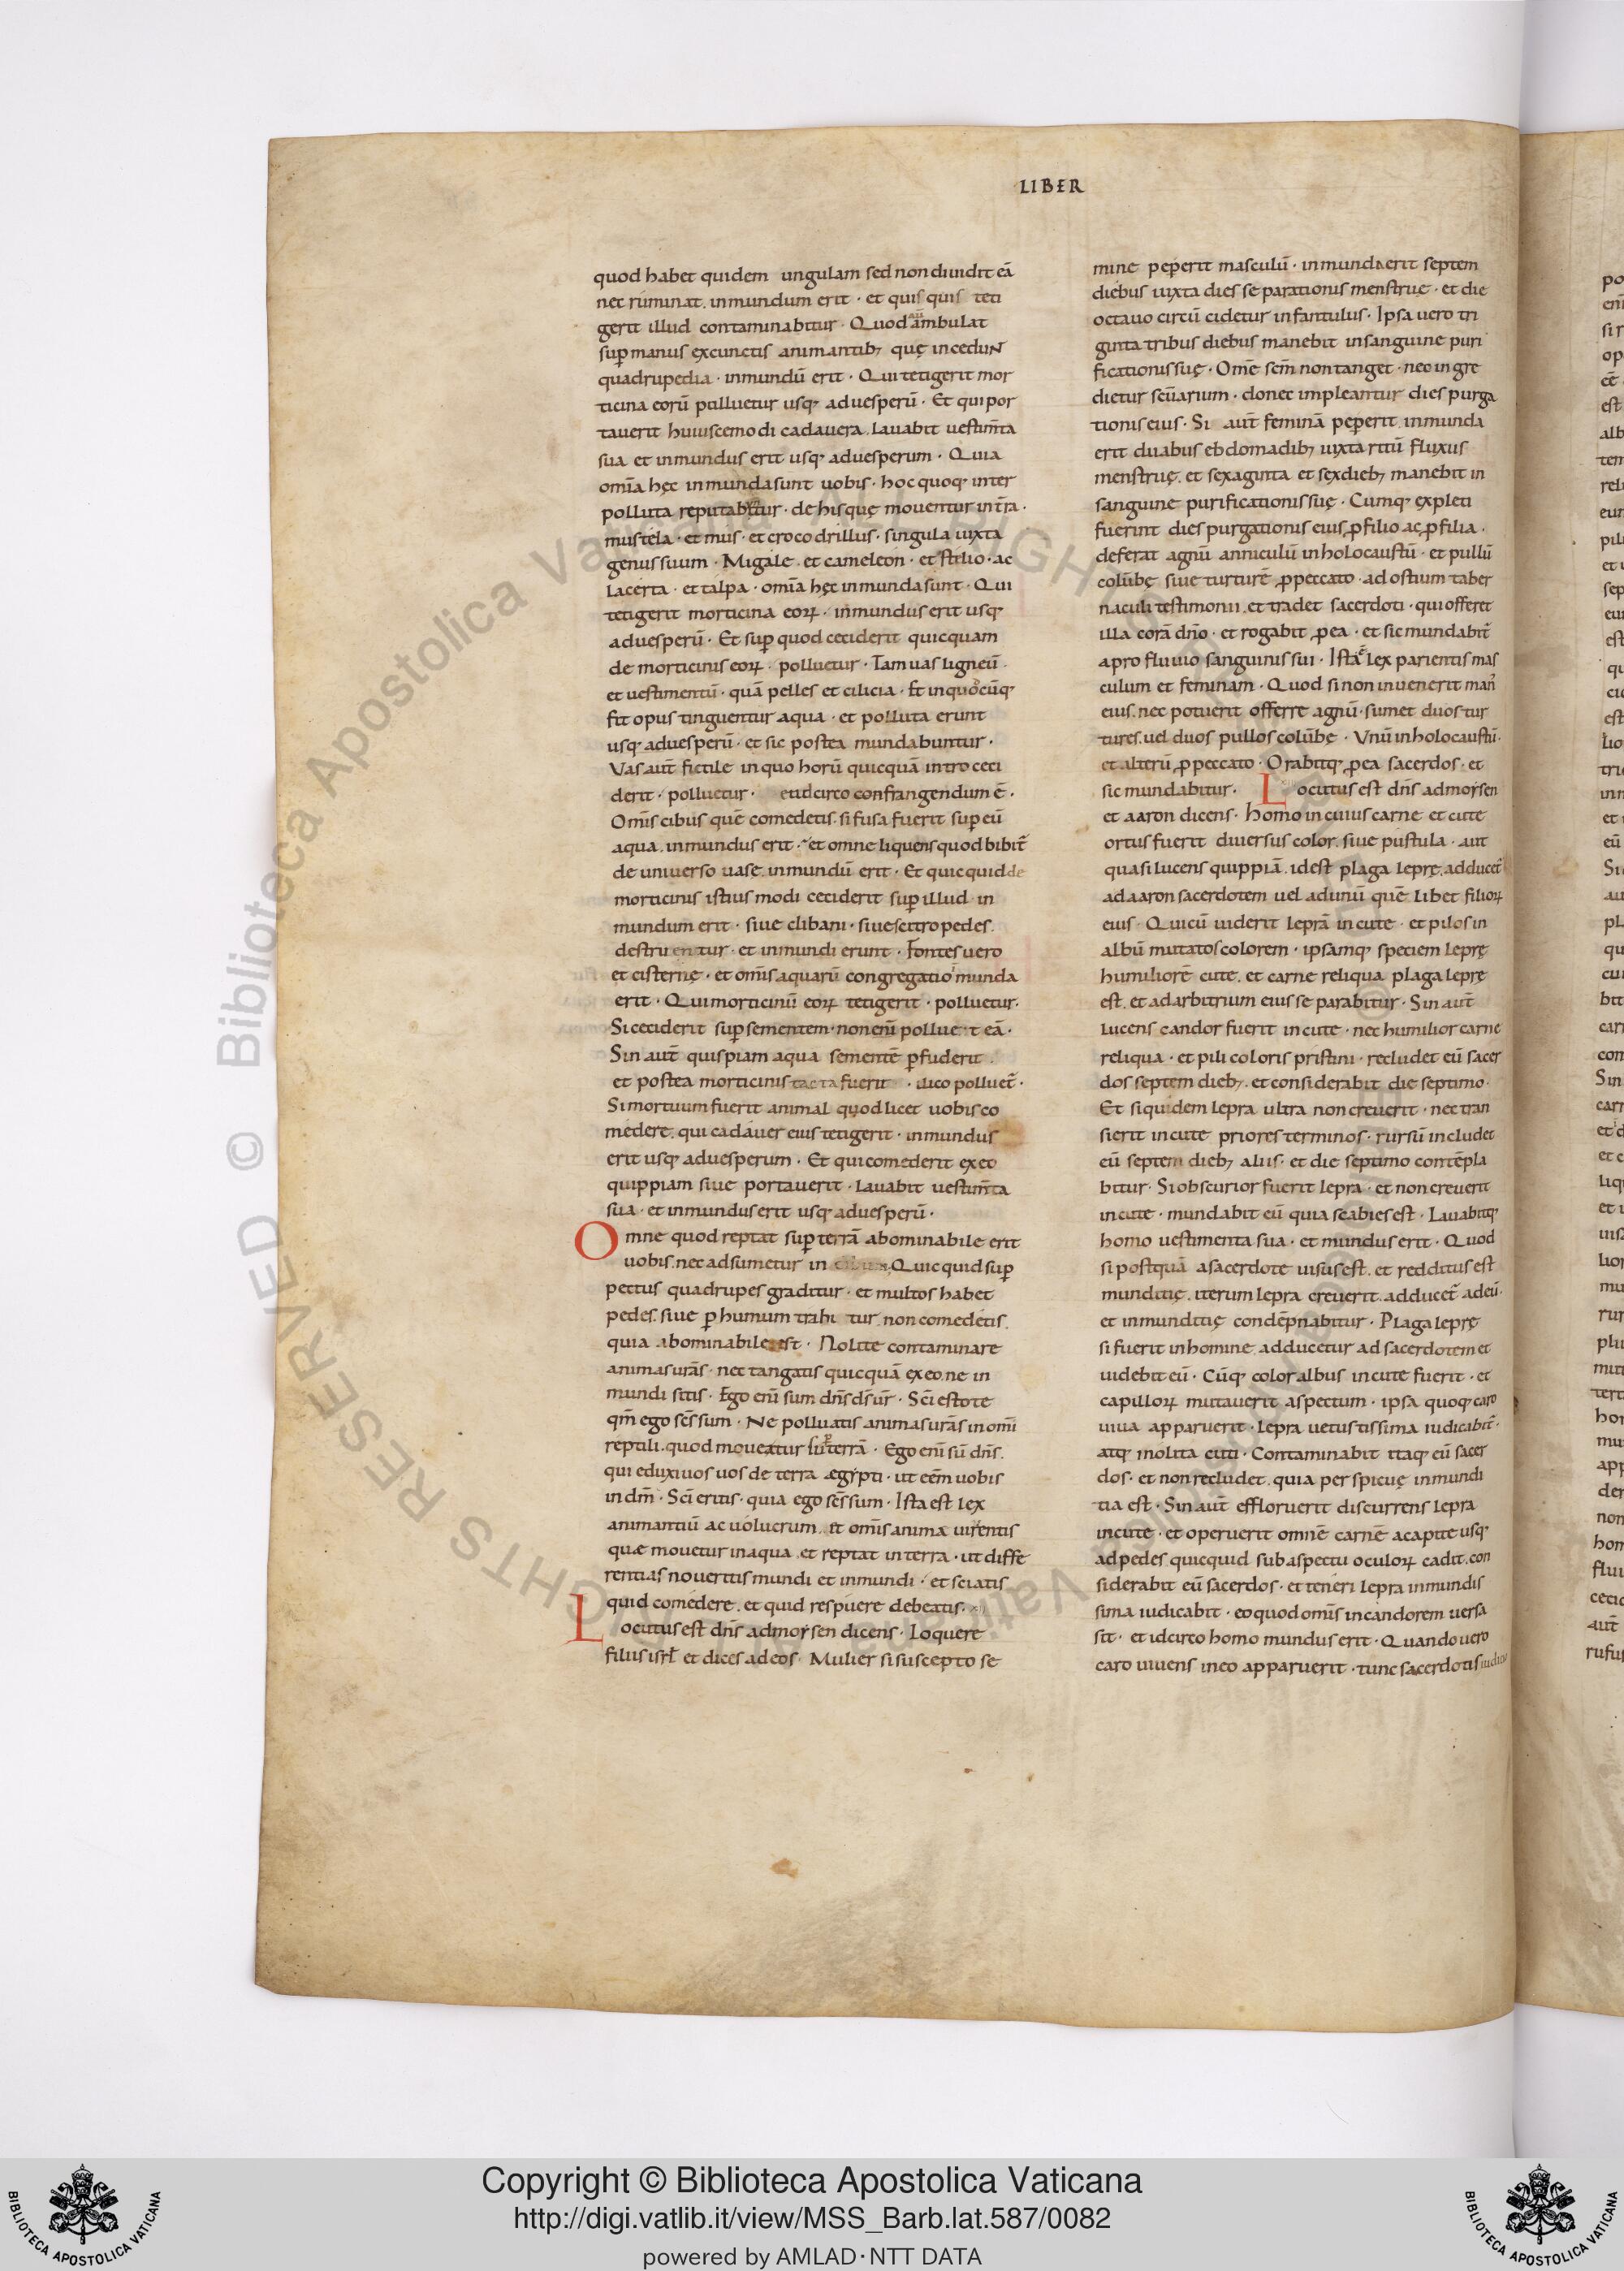 LIBER
quod habet quidem ungulam sed non diuidit eā
nec ruminat. inmundum erit · et quis quis teti
gerit illud contaminabitur · Quod ambulat
sup manus ex cunctis animantib; quę incedunt
quadrupedia · inmundū erit · Qui tetigerit mor
ticina eorū polluetur usq; ad uesperū · Et qui por
tauerit huiuscemodi cadauera. lauabit uestim̄ta
sua et inmundus erit usq; ad uesperum · Quia
om̄ia hęc inmunda sunt uobis · hoc quoq; inter
polluta reputabitur · de his quę mouentur in tr̄a ·
mustela · et mus · et crocodrillus · singula iuxta
genus suum · Migale · et cameleon · et stelio · ac
lacerta · et talpa · om̄ia hęc inmunda sunt · Qui
tetigerit morticina eoꝝ · inmundus erit usq;
ad uesperū · Et sup quod ceciderit quicquam
de morticinis eoꝝ · polluetur · Tam uas ligneū ·
et uestimentū · quā pelles et cilicia · Et in quocūq;
fit opus tinguentur aqua · et polluta erunt
usq; ad uesperū · et sic postea mundabuntur ·
Vas aut̄ fictile in quo horū quicquā intro ceci
derit · polluetur · et idcirco confrangendum ē ·
Om̄is cibus quē comedetis. si fusa fuerit sup eū
aqua. inmundus erit · et omne liquens quod bibit̄
de uniuerso uase. inmundū erit · Et quicquid de
morticinis istius modi ceciderit sup illud in
mundum erit · siue clibani · siue settropedes.
destruentur · et inmundi erunt · Fontes uero
et cisternę · et om̄is aquarū congregatio munda
erit · Qui morticinū eoꝝ tetigerit · polluetur.
Si ceciderit sup sementem · non enī polluet eā ·
Sin aut̄ quispiam aqua sementē ꝑfuderit.
et postea morticinis tacta fuerit · ilico polluet̄ ·
Si mortuum fuerit animal quod licet uobis co
medere. qui cadauer eius tetigerit · inmundus
erit usq; ad uesperum · Et qui comederit ex eo
quippiam siue portauerit · lauabit uestim̄ta
sua · et inmundus erit usq; ad uesperū ·
Omne quod reptat sup terrā abominabile erit
uobis. nec adsumetur in cibum. Quicquid sup
pectus quadrupes graditur · et multos habet
pedes. siue ꝑ humum trahitur non comedetis.
quia abominabile est · Nolite contaminare
animas ur̄as · nec tangatis quicquā ex eo. ne in
mundi sitis · Ego enī sum dn̄s ds̄ ur̄ · Sc̄i estote
qm̄ ego sc̄s sum · Ne polluatis animas ur̄as in om̄i
reptili. quod mouetur sup terrā · Ego enī sū dn̄s.
qui eduxi uos de terra ægypti · ut eēm uobis
in dm̄ · Sc̄i eritis · quia ego sc̄s sum · Ista est lex
animantiū ac uolucrum. et om̄is anima uiuentis
quæ mouetur in aqua et reptat in terra · ut diffe
rentias noueritis mundi et inmundi · et sciatis
quid comedere. et quid respuere debeatis.
Locutus est dn̄s ad moysen dicens · Loquere
filiis isrł et dices ad eos · Mulier si suscepto se
mine pepererit masculū · inmunda erit septem
diebus iuxta dies separationis menstruę · et die
octauo circū cidetur infantulus · Ipsa uero tri
ginta tribus diebus manebit in sanguine puri
ficationis suę · Om̄e sc̄m non tanget · nec ingre
dietur sc̄uarium · donec impleantur dies purga
tionis eius · Si aut̄ feminā pepererit. inmunda
erit duabus ebdomadib; iuxta ritū fluxus
menstruę. et sexaginta et sex dieb; manebit in
sanguine purificationis suę · Cumq; expleti
fuerint dies purgationis eius ꝓ filio ac ꝓ filia ·
deferat agnū anniculū in holocaustū · et pullū
colūbę siue turturē ꝓ peccato · ad ostium taber
naculi testimonii. et tradet sacerdoti · qui offeret
illa corā dn̄o · et rogabit ꝓ ea · et sic mundabit̄
a profluuio sanguinis sui · Ista ē lex parientis mas
culum et feminam · Quod si non inuenerit man̄
eius. nec potuerit offerre agnū · sumet duos tur
tures. uel duos pullos colūbę · Vnū in holocaustū ·
et alterū ꝓ peccato · Orabitq; ꝓ ea sacerdos · et
sic mundabitur · Locutus est dn̄s ad moysen
et aaron dicens · homo in cuius carne et cute
ortus fuerit diuersus color. siue pustula · aut
quasi lucens quippiā. id est plaga leprę. adducet̄
ad aaron sacerdotem uel ad unū quē libet filioꝝ
eius · Qui cū uiderit leprā in cute · et pilos in
albū mutatos colorem · ipsamq; speciem leprę
humiliorē cute. et carne reliqua. plaga leprę
est. et ad arbitrium eius separabitur · Sin aut̄
lucens candor fuerit in cute · nec humilior carne
reliqua · et pili coloris pristini · recludet eū sacer
dos septem dieb;. et considerabit die septimo ·
Et siquidem lepra ultra non creuerit · nec tran
sierit in cute priores terminos · rursū includet
eū septem dieb; aliis · et die septimo contēpla
bitur · Si obscurior fuerit lepra · et non creuerit
in cute · mundabit eū quia scabies est · Lauabitq;
homo uestimenta sua · et mundus erit · Quod
si postquā a sacerdote uisus est. et redditus est
munditię. iterum lepra creuerit. adducet̄ ad eū ·
et inmunditię condēpnabitur · Plaga leprę
si fuerit in homine. adducetur ad sacerdotem et
uidebit eū · Cūq; color albus in cute fuerit · et
capilloꝝ mutauerit aspectum · ipsa quoq; caro
uiua apparuerit · lepra uetustissima iudicabit̄ ·
atq; inolita cuti · Contaminabit itaq; eū sacer
dos · et non recludet. quia perspicuę inmundi
tia est · Sin aut̄ effloruerit discurrens lepra
in cute · et operuerit omnē carnē a capite usq;
ad pedes quicquid sub aspectu oculoꝝ cadit. con
siderabit eū sacerdos · et teneri lepra inmundis
sima iudicabit · eo quod om̄is in candorem uersa
sit · et idcirco homo mundus erit · Quando uero
caro uiuens in eo apparuerit · tunc sacerdotis iudicio
Copyright © Biblioteca Apostolica Vaticana
http://digi.vatlib.it/view/MSS_Barb.lat.587/0082
powered by AMLAD·NTT DATA